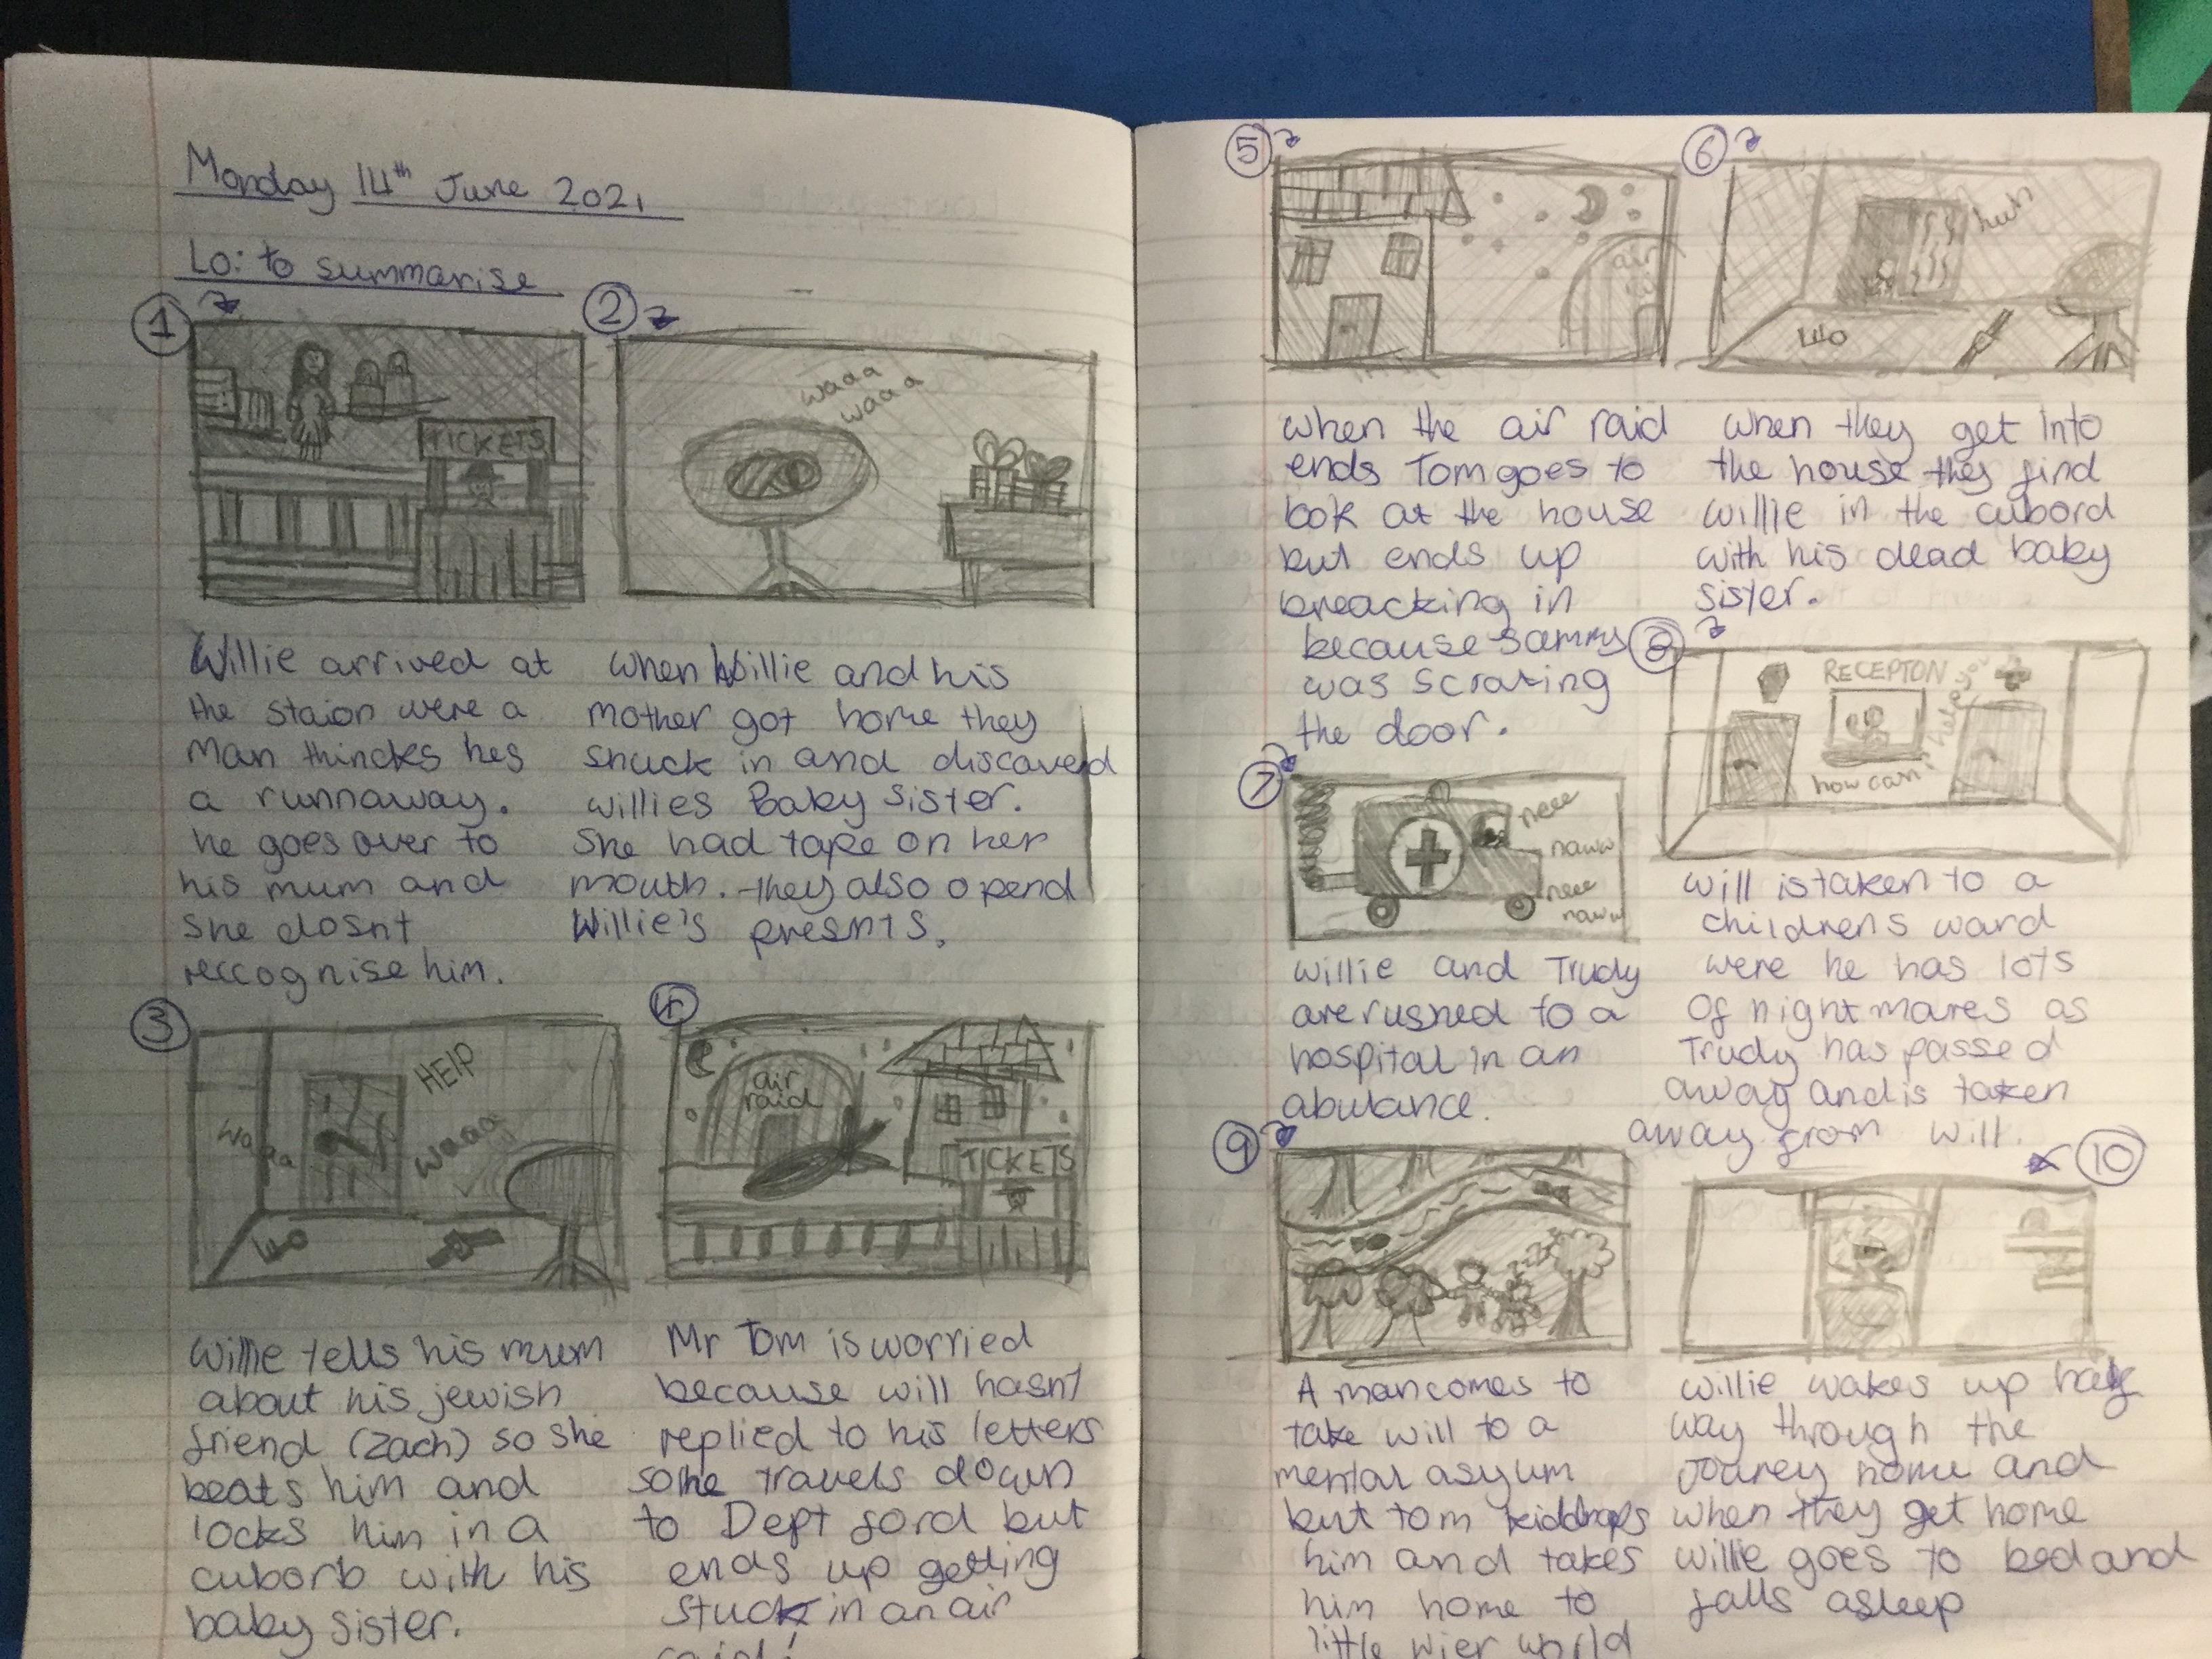 Monday 14th June 2021
Lo: to summarise
1
TICKETS
Willie arrived at
the staion were a
Man thincks hes
a runnaway.
he goes over to
his mum and
she dosnt
reccognise him.
2
waaa
waaa
when Willie and his
mother got home they
snuck in and discaverd
willies Baby sister.
She had tape on her
mouth. they also opend
Willie's presnts.
3
HELP
waaa
waaa
Willie tells his mum
about his jewish
friend (Zach) so she
beats him and
locks him in a
cuborb with his
baby sister.
4
air
raid
TICKETS
Mr Tom is worried
because will hasnt
replied to his letters
so he travels down
to Dept ford but
ends up getting
stuck in an air
raid!
5
air
when the air raid
ends Tom goes to
look at the house
but ends up
breacking in
because sammy
was scrating
the door.
6
huh
when they get into
the house they find
willie in the cubord
with his dead baby
sister.
7
neee
naww
neee
naww
willie and Trudy
are rushed to a
hospital in an
abulance.
8
RECEPTON
how can i help you
will is taken to a
childrens ward
were he has lots
of nightmares as
Trudy has passed
away and is taken
away from will.
9
zzzz
A man comes to
take will to a
mental asyum
but tom kiddnaps
him and takes
him home to
little wier world
10
willie wakes up half
way through the
jourey home and
when they get home
willie goes to bed and
falls asleep